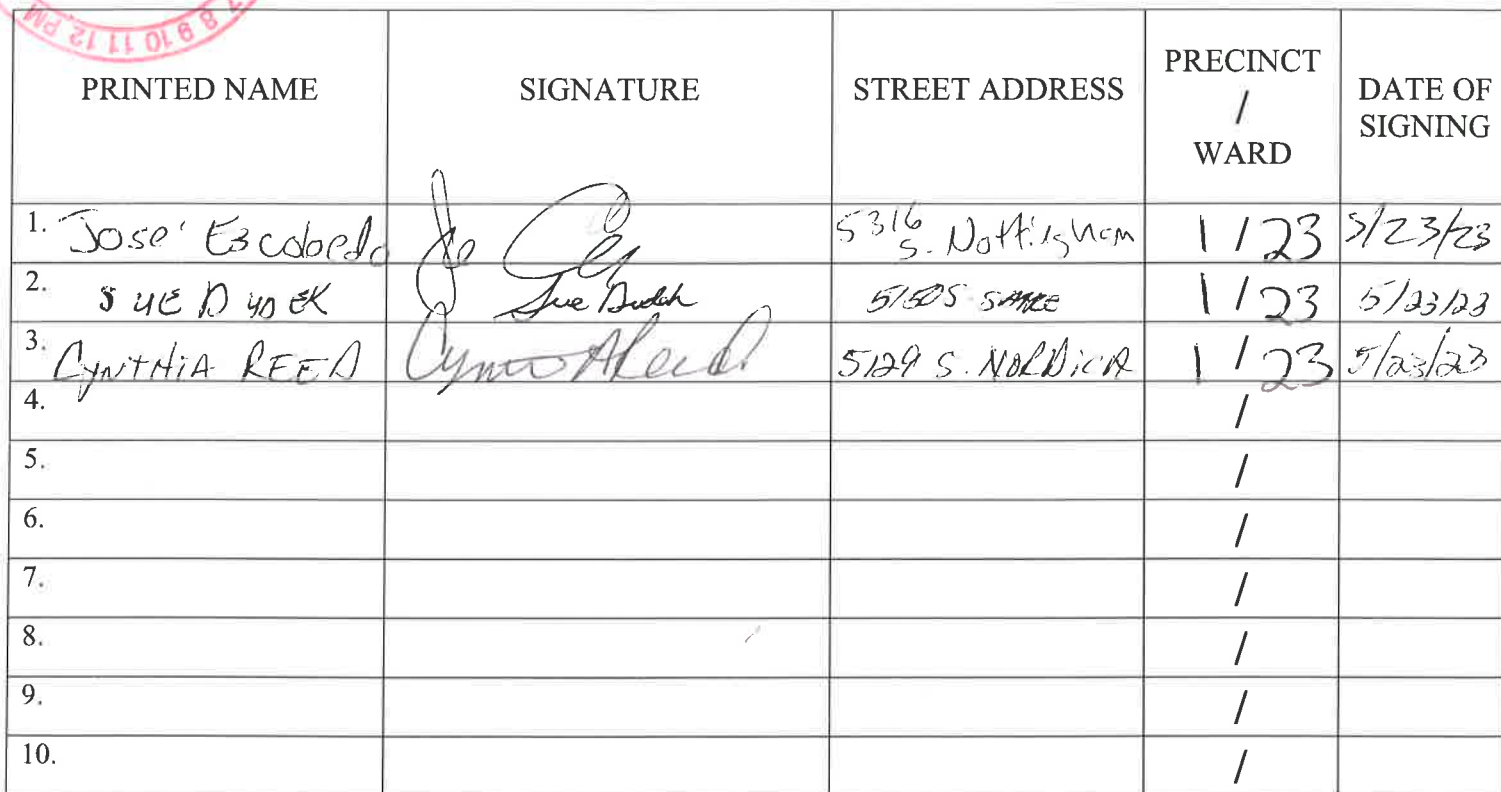 7 8 9 10 11 12 PM
PRINTED NAME SIGNATURE STREET ADDRESS PRECINCT / WARD DATE OF SIGNING
1. Jose' Escobedo 5316 S. Nottingham 1/23 5/23/23
2. SUE DYDEK Sue Dydek 5150 S 1/23 5/23/23
3. CYNTHIA REED Cynthia A Reed 5129 S. NORDICA 1/23 5/23/23
4. /
5. /
6. /
7. /
8. /
9. /
10. /